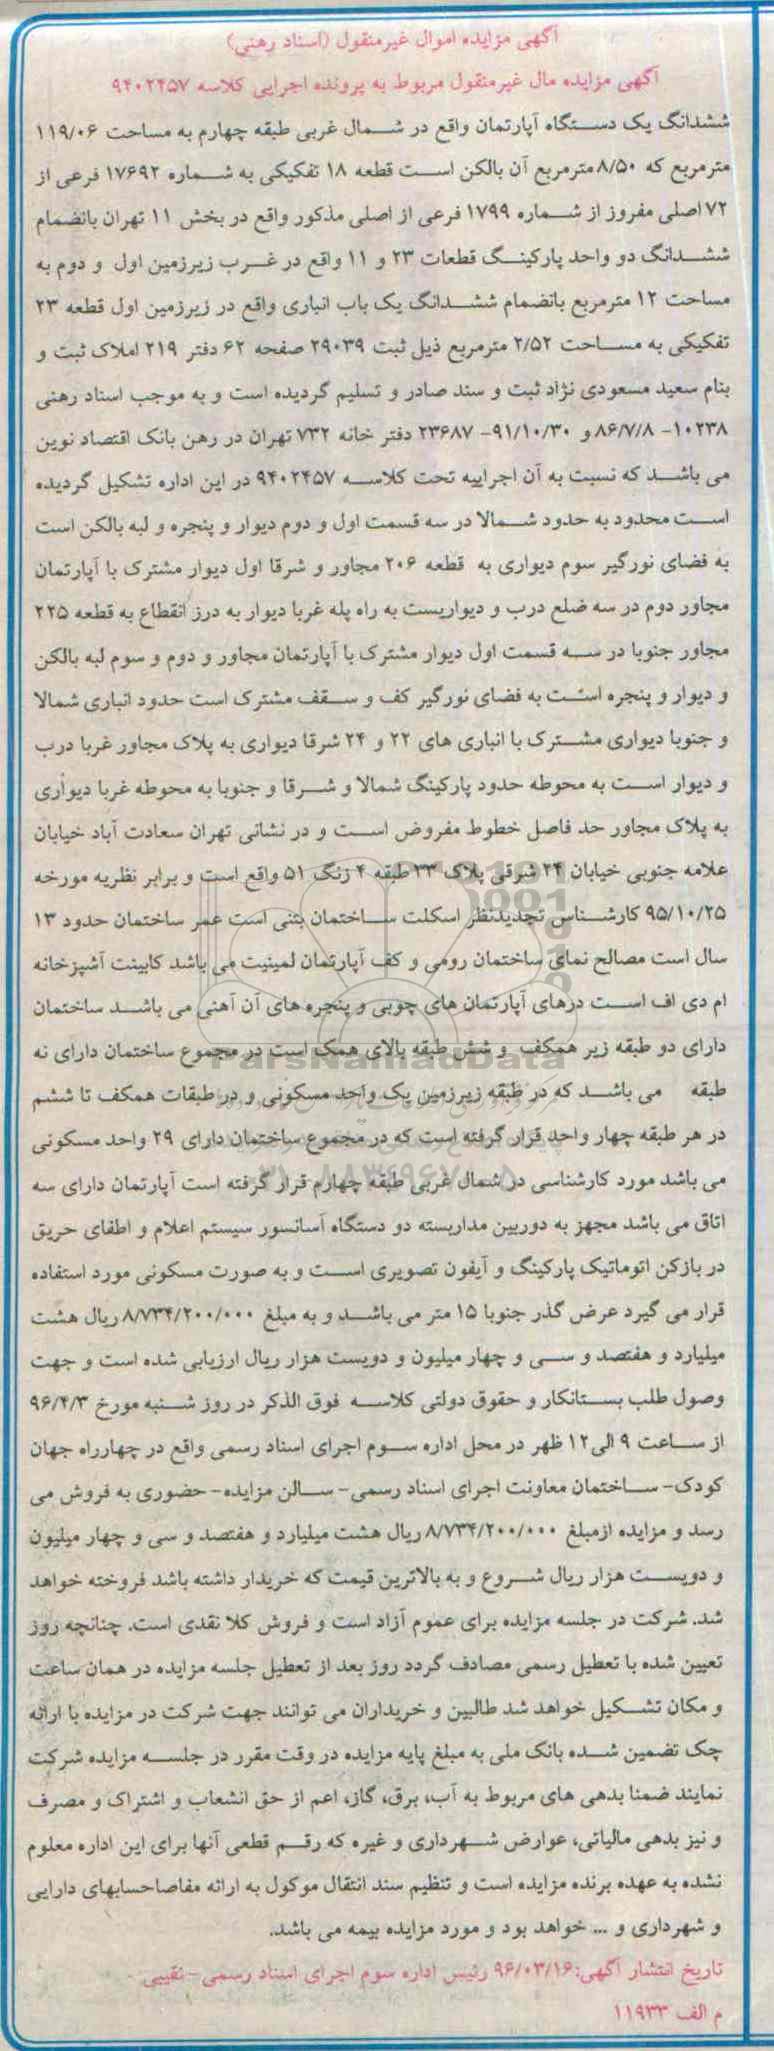 آگهی مزایده اموال غیرمنقول (اسناد رهنی)
آگهی مزایده مال غیرمنقول مربوط به پرونده اجرایی کلاسه ۹۴۰۲۴۵۷
ششدانگ یک دستگاه آپارتمان واقع در شمال غربی طبقه چهارم به مساحت ۱۱۹/۰۶
مترمربع که ۸/۵۰ مترمربع آن بالکن است قطعه ۱۸ تفکیکی به شماره ۱۷۶۹۲ فرعی از
۷۲ اصلی مفروز از شماره ۱۷۹۹ فرعی از اصلی مذکور واقع در بخش ۱۱ تهران بانضمام
ششدانگ دو واحد پارکینگ قطعات ۲۳ و ۱۱ واقع در غرب زیرزمین اول و دوم به
مساحت ۱۲ مترمربع بانضمام ششدانگ یک باب انباری واقع در زیرزمین اول قطعه ۲۳
تفکیکی به مساحت ۲/۵۲ مترمربع ذیل ثبت ۲۹۰۳۹ صفحه ۶۲ دفتر ۲۱۹ املاک ثبت و
بنام سعید مسعودی نژاد ثبت و سند صادر و تسلیم گردیده است و به موجب اسناد رهنی
۱۰۲۳۸- ۸۶/۷/۸ و ۹۱/۱۰/۳۰- ۲۳۶۸۷ دفتر خانه ۷۳۲ تهران در رهن بانک اقتصاد نوین
می باشد که نسبت به آن اجراییه تحت کلاسه ۹۴۰۲۴۵۷ در این اداره تشکیل گردیده
است محدود به حدود شمالا در سه قسمت اول و دوم دیوار و پنجره و لبه بالکن است
به فضای نورگیر سوم دیواری به قطعه ۲۰۶ مجاور و شرقا اول دیوار مشترک با آپارتمان
مجاور دوم در سه ضلع درب و دیواریست به راه پله غربا دیوار به درز انقطاع به قطعه ۲۲۵
مجاور جنوبا در سه قسمت اول دیوار مشترک با آپارتمان مجاور و دوم و سوم لبه بالکن
و دیوار و پنجره است به فضای نورگیر کف و سقف مشترک است حدود انباری شمالا
و جنوبا دیواری مشترک با انباری های ۲۲ و ۲۴ شرقا دیواری به پلاک مجاور غربا درب
و دیوار است به محوطه حدود پارکینگ شمالا و شرقا و جنوبا به محوطه غربا دیواری
به پلاک مجاور حد فاصل خطوط مفروض است و در نشانی تهران سعادت آباد خیابان
علامه جنوبی خیابان ۲۴ شرقی پلاک ۳۳ طبقه ۴ زنگ ۵۱ واقع است و برابر نظریه مورخه
۹۵/۱۰/۲۵ کارشناس تجدیدنظر اسکلت ساختمان بتنی است عمر ساختمان حدود ۱۳
سال است مصالح نمای ساختمان رومی و کف آپارتمان لمینیت می باشد کابینت آشپزخانه
ام دی اف است درهای آپارتمان های چوبی و پنجره های آن آهنی می باشد ساختمان
دارای دو طبقه زیر همکف و شش طبقه بالای همک است در مجموع ساختمان دارای نه
ParsNamadData
طبقه می باشد که در طبقه زیرزمین یک واحد مسکونی و در طبقات همکف تا ششم
در هر طبقه چهار واحد قرار گرفته است که در مجموع ساختمان دارای ۲۹ واحد مسکونی
می باشد مورد کارشناسی در شمال غربی طبقه چهارم قرار گرفته است آپارتمان دارای سه
اتاق می باشد مجهز به دوربین مداربسته دو دستگاه آسانسور سیستم اعلام و اطفای حریق
در بازکن اتوماتیک پارکینگ و آیفون تصویری است و به صورت مسکونی مورد استفاده
قرار می گیرد عرض گذر جنوبا ۱۵ متر می باشد و به مبلغ ۸/۷۳۴/۲۰۰/۰۰۰ ریال هشت
میلیارد و هفتصد و سی و چهار میلیون و دویست هزار ریال ارزیابی شده است و جهت
وصول طلب بستانکار و حقوق دولتی کلاسه فوق الذکر در روز شنبه مورخ ۹۶/۴/۳
از ساعت ۹ الی ۱۲ ظهر در محل اداره سوم اجرای اسناد رسمی واقع در چهارراه جهان
کودک- ساختمان معاونت اجرای اسناد رسمی- سالن مزایده- حضوری به فروش می
رسد و مزایده ازمبلغ ۸/۷۳۴/۲۰۰/۰۰۰ ریال هشت میلیارد و هفتصد و سی و چهار میلیون
و دویست هزار ریال شروع و به بالاترین قیمت که خریدار داشته باشد فروخته خواهد
شد. شرکت در جلسه مزایده برای عموم آزاد است و فروش کلا نقدی است. چنانچه روز
تعیین شده با تعطیل رسمی مصادف گردد روز بعد از تعطیل جلسه مزایده در همان ساعت
و مکان تشکیل خواهد شد طالبین و خریداران می توانند جهت شرکت در مزایده با ارائه
چک تضمین شده بانک ملی به مبلغ پایه مزایده در وقت مقرر در جلسه مزایده شرکت
نمایند ضمنا بدهی های مربوط به آب، برق، گاز، اعم از حق انشعاب و اشتراک و مصرف
و نیز بدهی مالیاتی، عوارض شهرداری و غیره که رقم قطعی آنها برای این اداره معلوم
نشده به عهده برنده مزایده است و تنظیم سند انتقال موکول به ارائه مفاصاحسابهای دارایی
و شهرداری و ... خواهد بود و مورد مزایده بیمه می باشد.
تاریخ انتشار آگهی: ۹۶/۰۳/۱۶ رئیس اداره سوم اجرای اسناد رسمی- نقیبی
م الف ۱۱۹۳۳